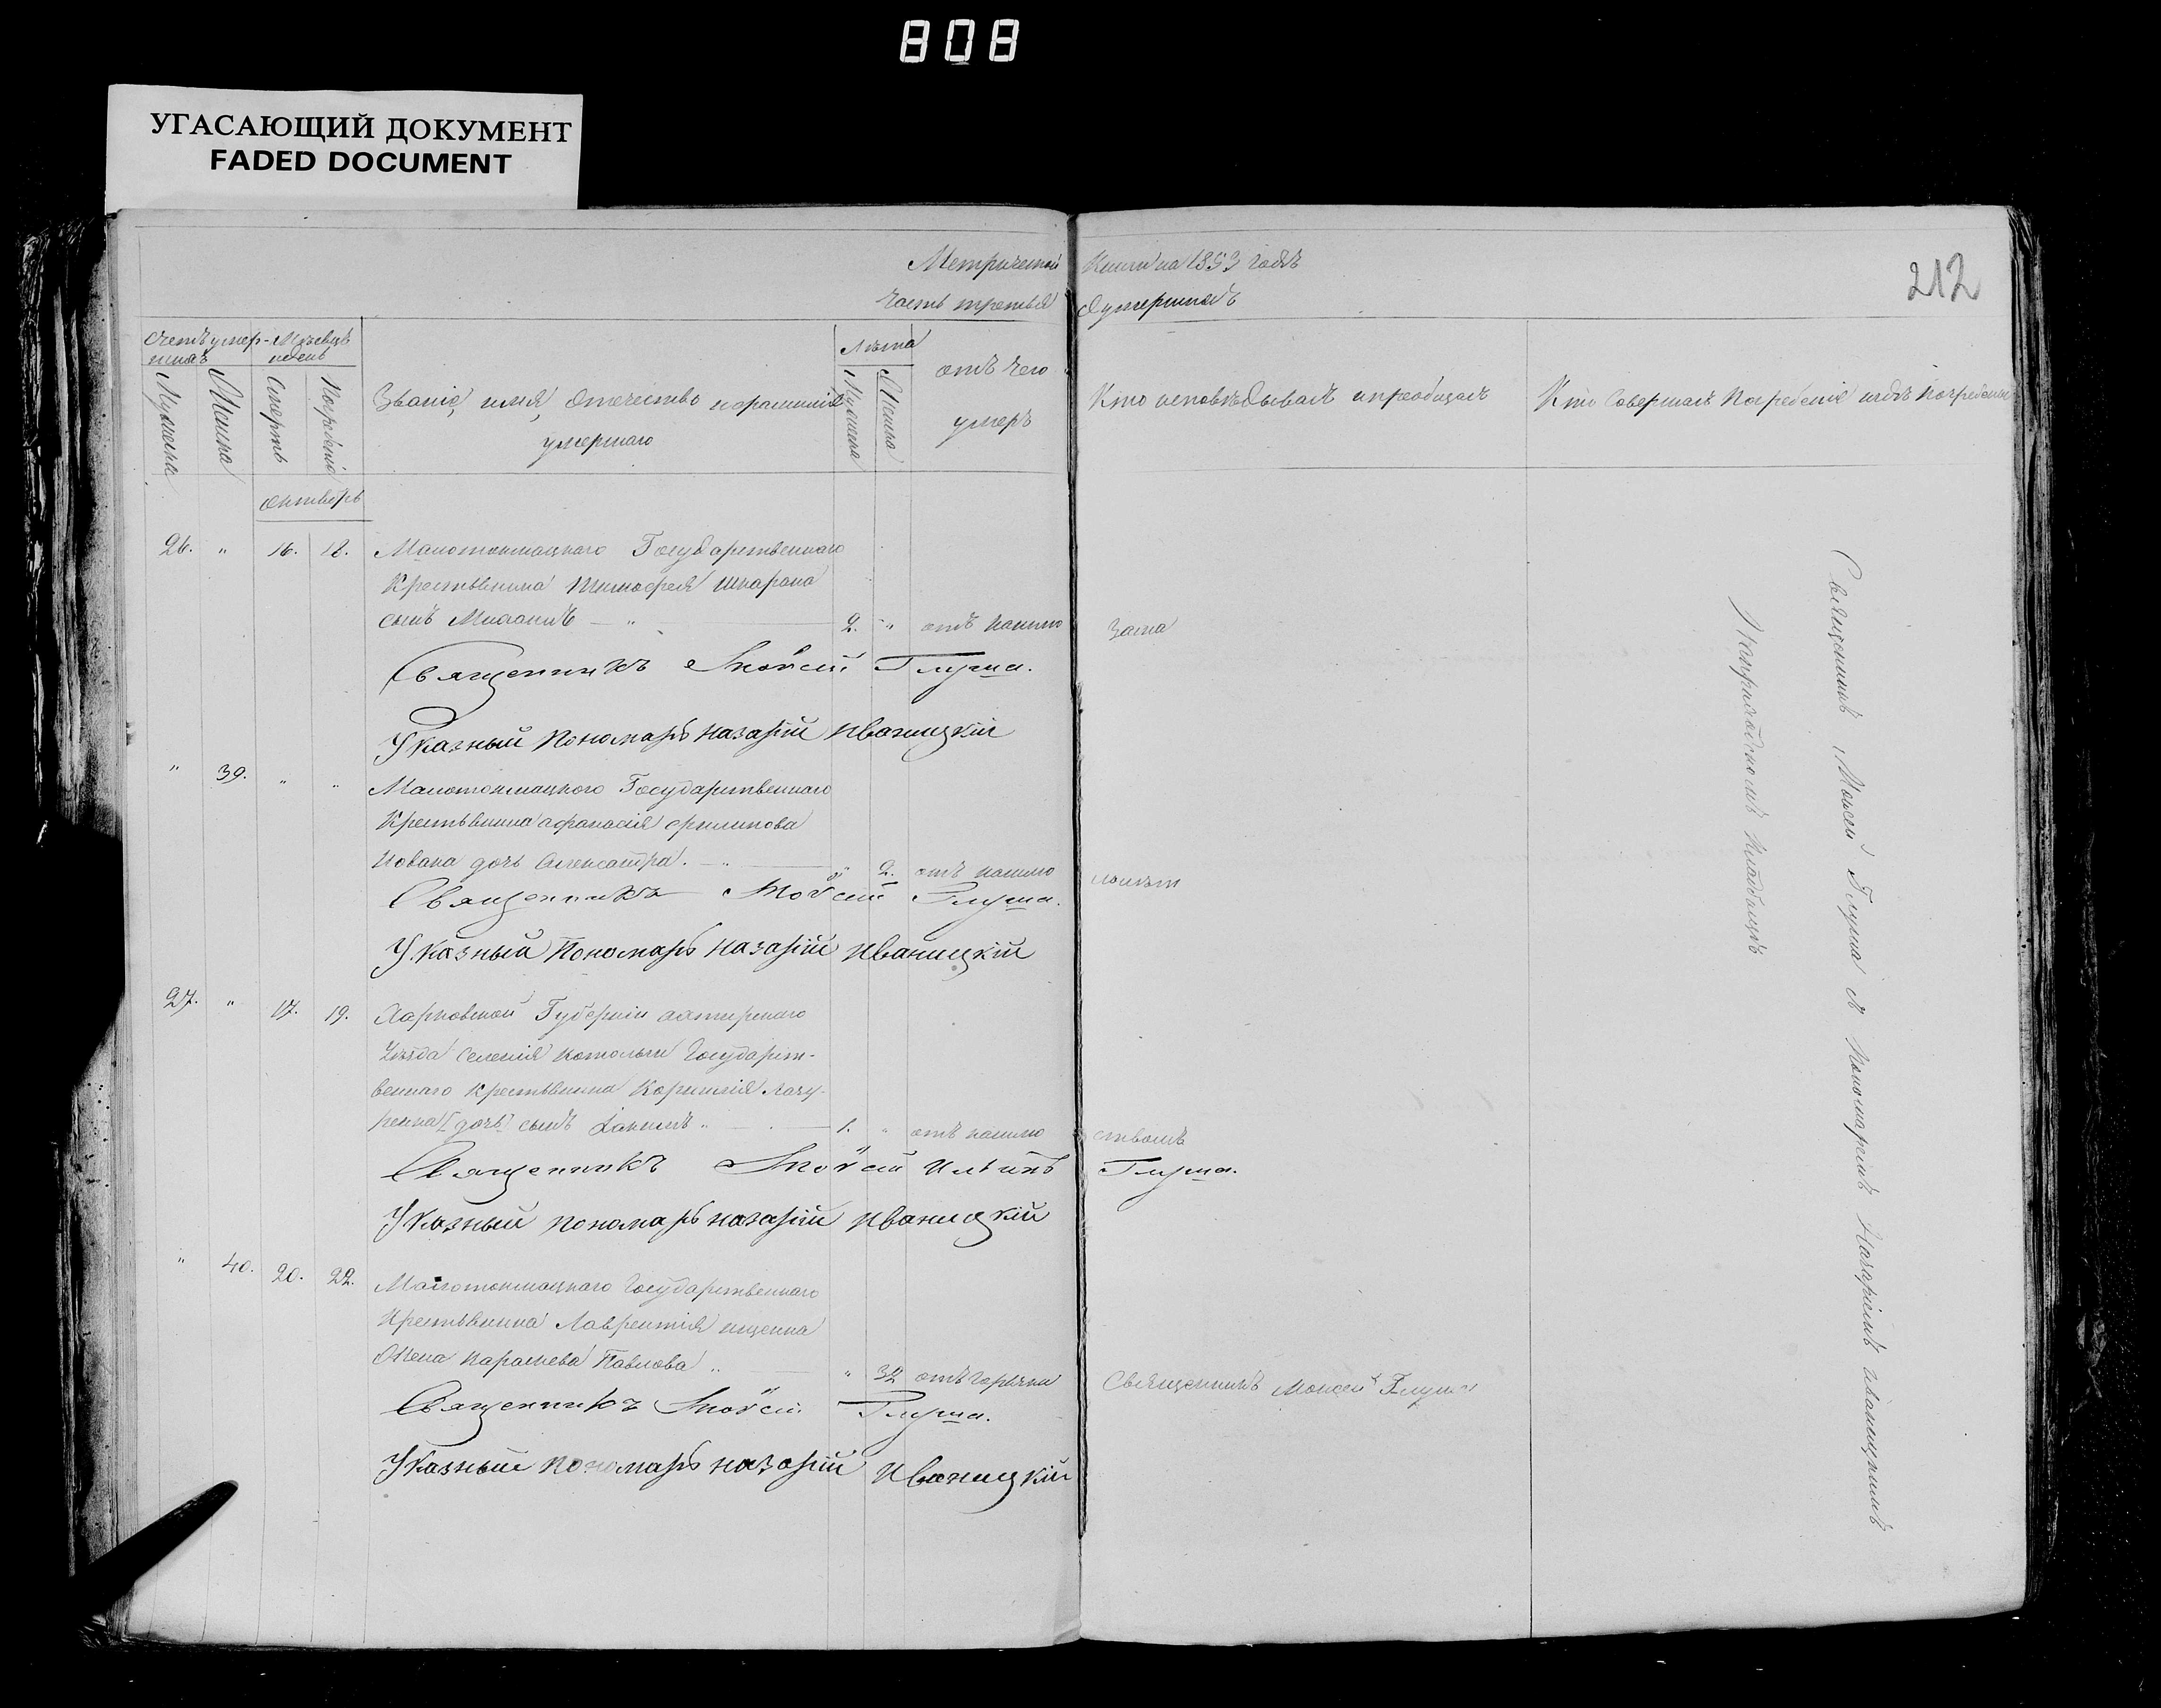 808
УГАСАЮЩИЙ ДОКУМЕНТ
FADED DOCUMENT
212
Метрической Книги на 1853 годъ
Часть третья Оумершихъ
Счетъ умер-шихъ
Мѣсяцъ и день
Мужеска
Женска
Смерть
Погребеніе
Званіе, имя, отечество и фамилія
умершаго
Лѣта
Мужеска
Женска
отъ чего
умеръ
Кто исповѣдывалъ и пріобщалъ
Кто Совершалъ Погребеніе и гдѣ погребены
октябрь
26. " 16. 18. Малотокмацкаго Государственнаго
Крестьянина Тимофея
сынъ 2. " отъ кашлю
Священникъ Мойсей Глума.
Указный Пономарь Назарій Иваницкій
" 39. " " Малотокмацкого Государственнаго
Крестьянина афанасія филипова
дочь Александра. " 2. отъ кашлю
Священникъ Мойсей Глума.
Указный Пономарь Назарій Иваницкій
27. " 17. 19. Харковской Губерніи ахтирскаго
уѣзда Селенія котельвы Государст-
веннаго крестьянина Корнилія Лазу-
ренка [дочь] сынъ 1. " отъ кашлю
Священникъ Мойсей Ильинъ Глума.
Указный пономарь назарій Иваницкій
" 40. 20. 22. Малотокмацкаго Государственнаго
Крестьянина Лаврентія ищенка
Жена Параскева Павлова " " 32 отъ горячки Священникъ Моисей Глума
Священникъ Мойсей Глума.
Указный Пономарь назарій Иваницкій
Священникъ Моисей Глума съ Пономаремъ Назаріемъ Иваницкимъ
На приходскомъ кладбищѣ